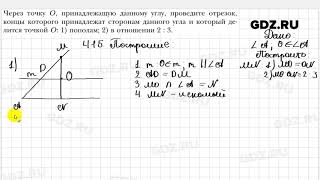 Через точку O, принадлежащую данному углу, проведите отрезок,
концы которого принадлежат сторонам данного угла и который де-
лится точкой O: 1) пополам; 2) в отношении 2 : 3.
GDZ.RU
415 Построение
Дано
∠A, O∈∠A
Построить
MN 1) MO=ON
2) MO:ON=2:3
1)
M
m D O
A N
1 m O∈m, m ∥ ∠A
2 AD = DM
3 MO ∩ ∠A = N
4 MN - искомый
GDZ.RU